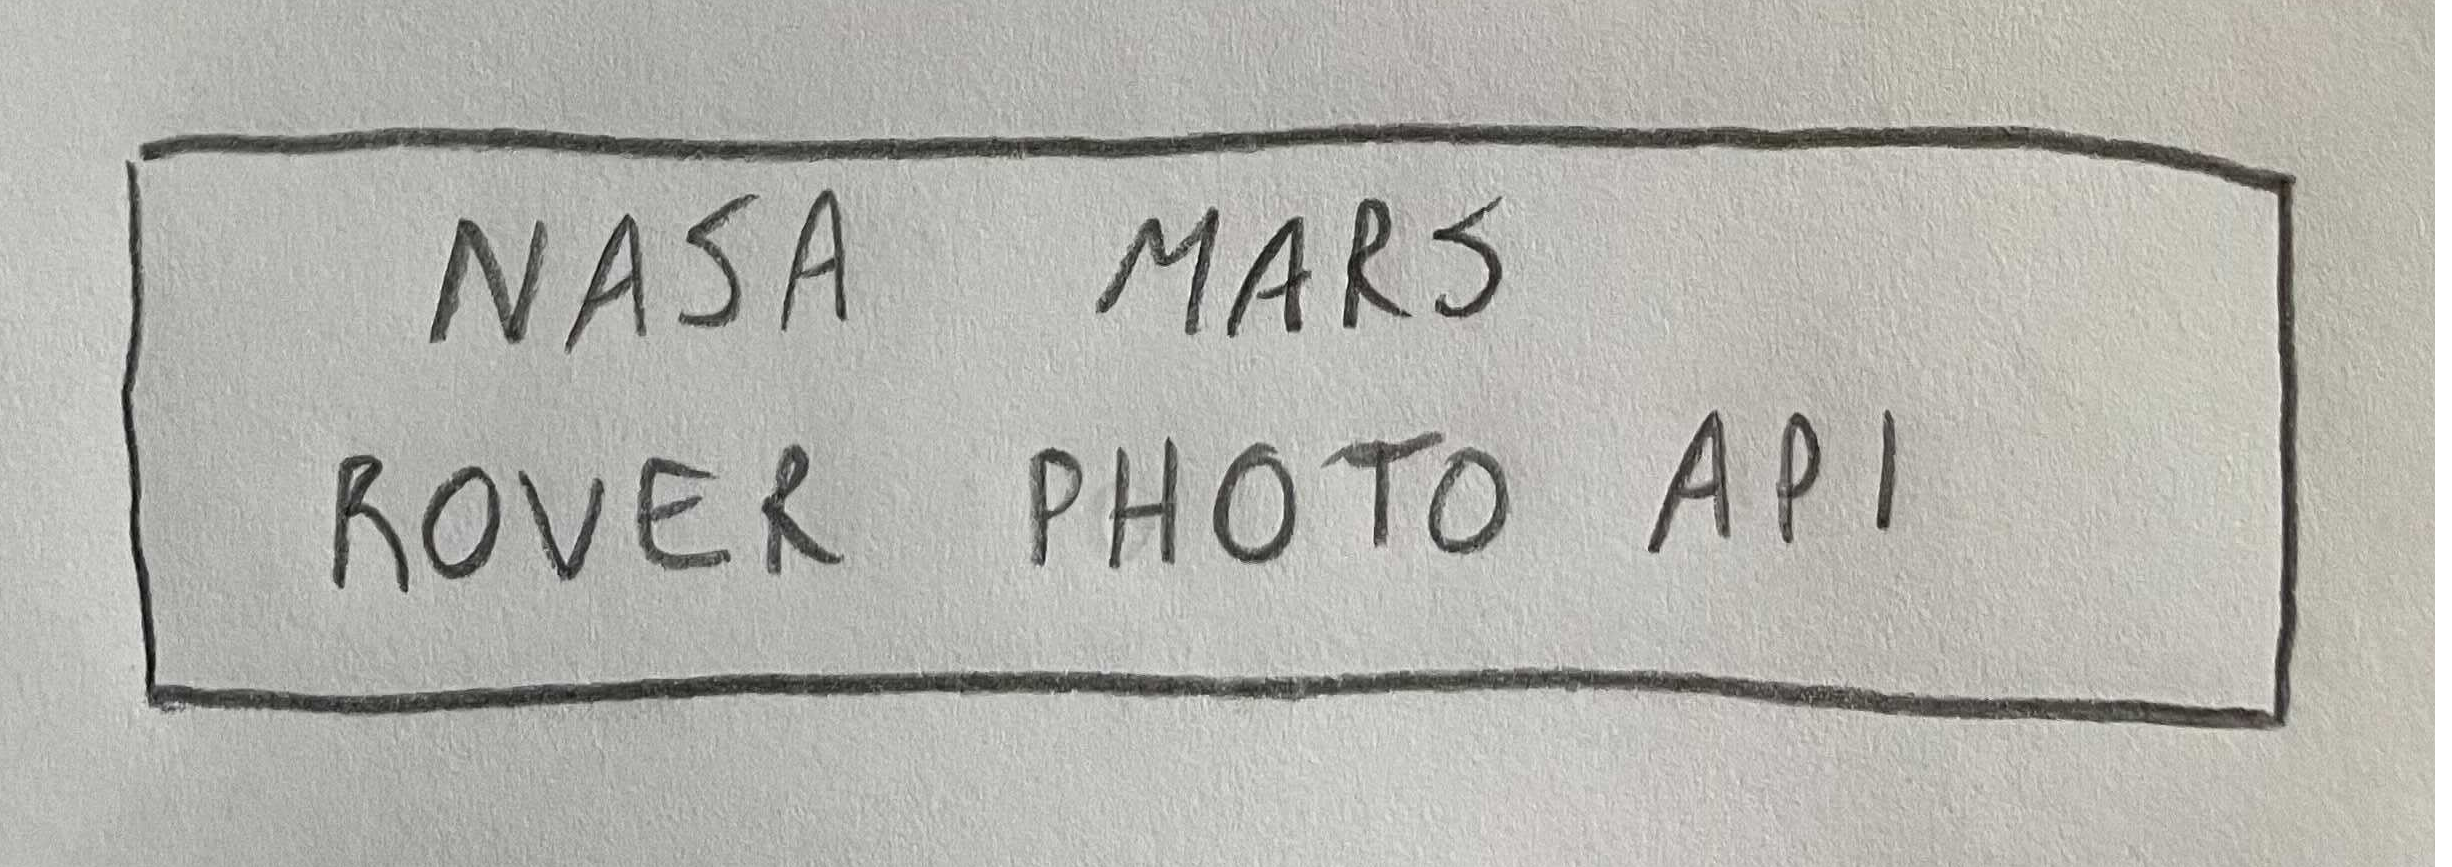 NASA MARS
ROVER PHOTO API